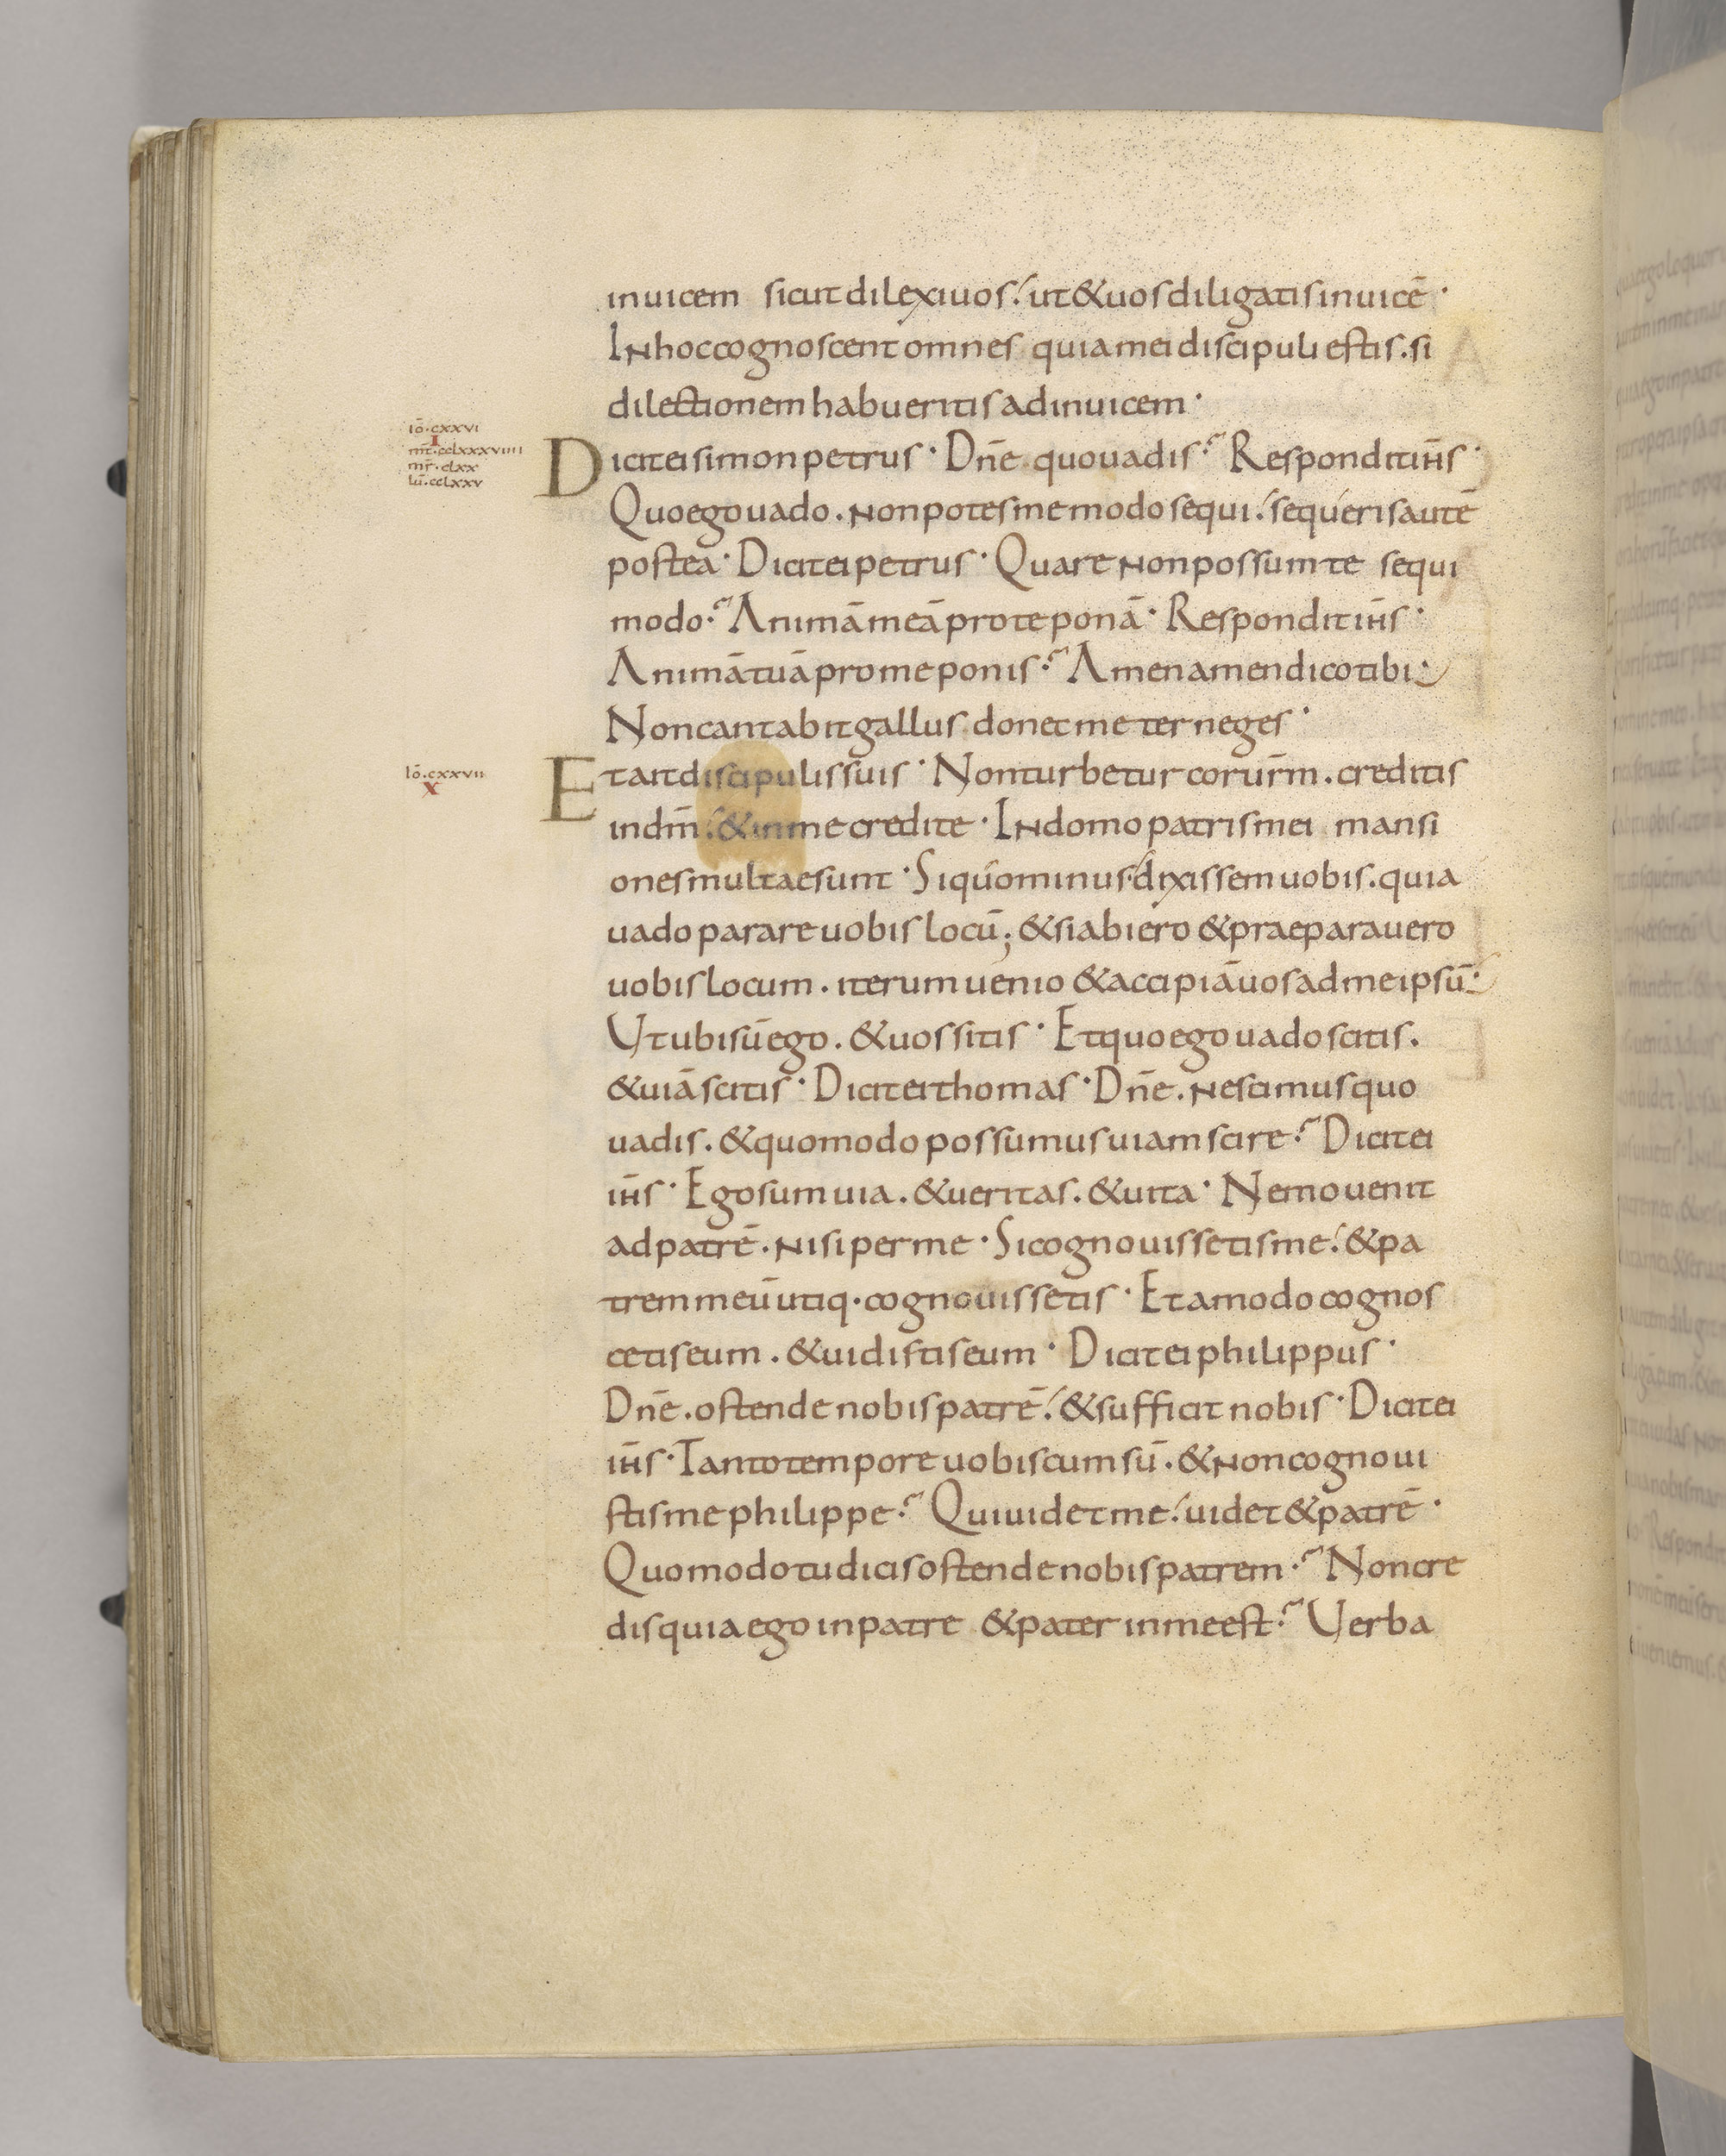 inuicem sicut dilexi uos. ut & uos diligatis inuicē.
In hoc cognoscent omnes quia mei discipuli estis. si
dilectionem habueritis ad inuicem.
iō. cxxvi
I
mt̄. cclxxxviiii
mr̄. clxx
lū. cclxxv
Dicit ei simon petrus. Dn̄e quo uadis? Respondit ih̄s.
Quo ego uado. non potes me modo sequi. sequeris autē
postea. Dicit ei petrus. Quare non possum te sequi
modo? Animā meā pro te ponā. Respondit ih̄s.
Animā tuā pro me ponis? Amen amen dico tibi.
Non cantabit gallus donec me ter neges.
Iō. cxxvii
X
Et ait discipulis suis. Non turbetur cor ūrm. creditis
in dm̄. & in me credite. In domo patris mei mansi
ones multae sunt. Si quominus dixissem uobis. quia
uado parare uobis locū; & si abiero & praeparauero
uobis locum. iterum uenio & accipiā uos ad me ipsū.
Ut ubi sū ego. & uos sitis. Et quo ego uado scitis.
& uiā scitis. Dicit ei thomas. Dn̄e. nescimus quo
uadis. & quomodo possumus uiam scire? Dicit ei
ih̄s. Ego sum uia. & ueritas. & uita. Nemo uenit
ad patrē. nisi per me. Si cognouissetis me. & pa
trem meū utiq. cognouissetis. Et amodo cognos
cetis eum. & uidistis eum. Dicit ei philippus.
Dn̄e. ostende nobis patrē. & sufficit nobis. Dicit ei
ih̄s. Tanto tempore uobiscum sū. & non cognoui
stis me philippe? Qui uidet me. uidet & patrē.
Quomodo tu dicis ostende nobis patrem? Non cre
dis quia ego in patre & pater in me est? Uerba